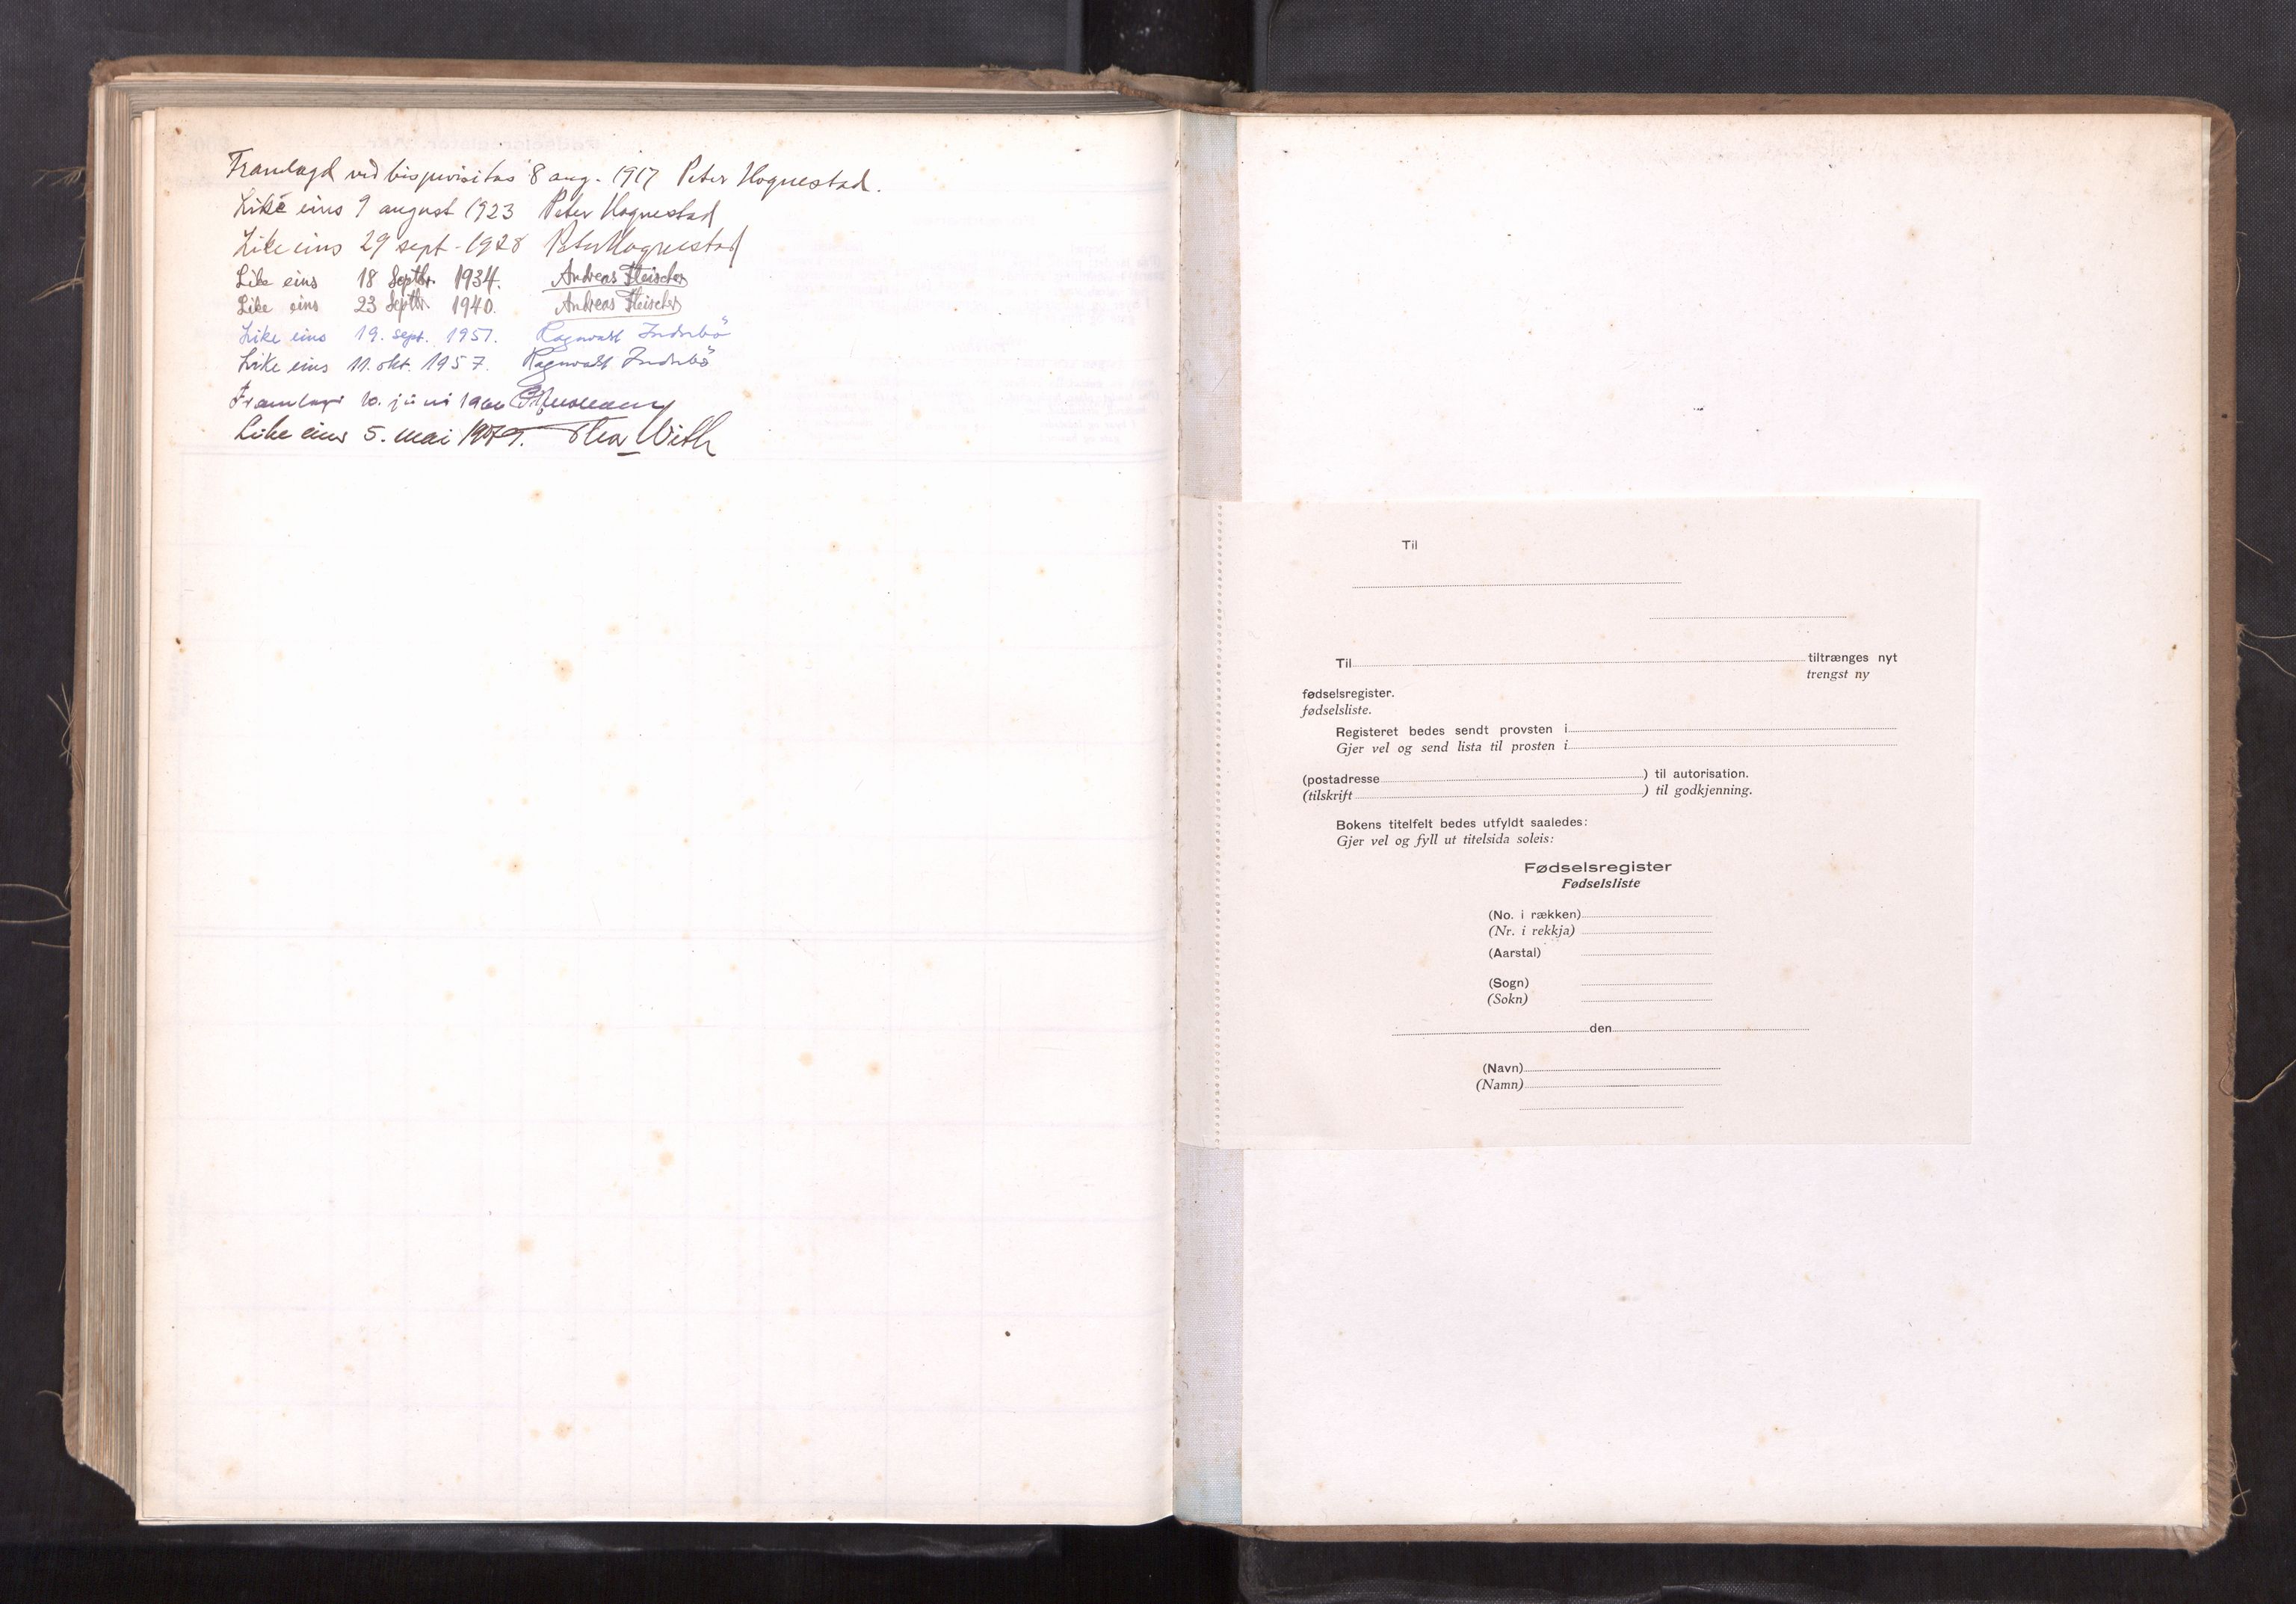 Framlagd ved bispevisitas 8 aug. 1917 Peter Hognestad.
Like eins 9 august 1923 Peter Hognestad
Like eins 29 sept. 1928 Peter Hognestad
Like eins 18 Septbr. 1934. Andreas Fleischer
Like eins 23 Septbr. 1940. Andreas Fleischer
Like eins 19. sept. 1951. Ragnvald Indrebö
Like eins 11. okt. 1957. Ragnvald Indrebö
Framlagt 10. juni 1966
Like eins 5. mai 1979. Thor With
Til
Til tiltrænges nyt
trengst ny
fødselsregister.
fødselsliste.
Registeret bedes sendt provsten i
Gjer vel og send lista til prosten i
(postadresse ) til autorisation.
(tilskrift ) til godkjenning.
Bokens titelfelt bedes utfyldt saaledes:
Gjer vel og fyll ut titelsida soleis:
Fødselsregister
Fødselsliste
(No. i rækken)
(Nr. i rekkja)
(Aarstal)
(Sogn)
(Sokn)
den
(Navn)
(Namn)